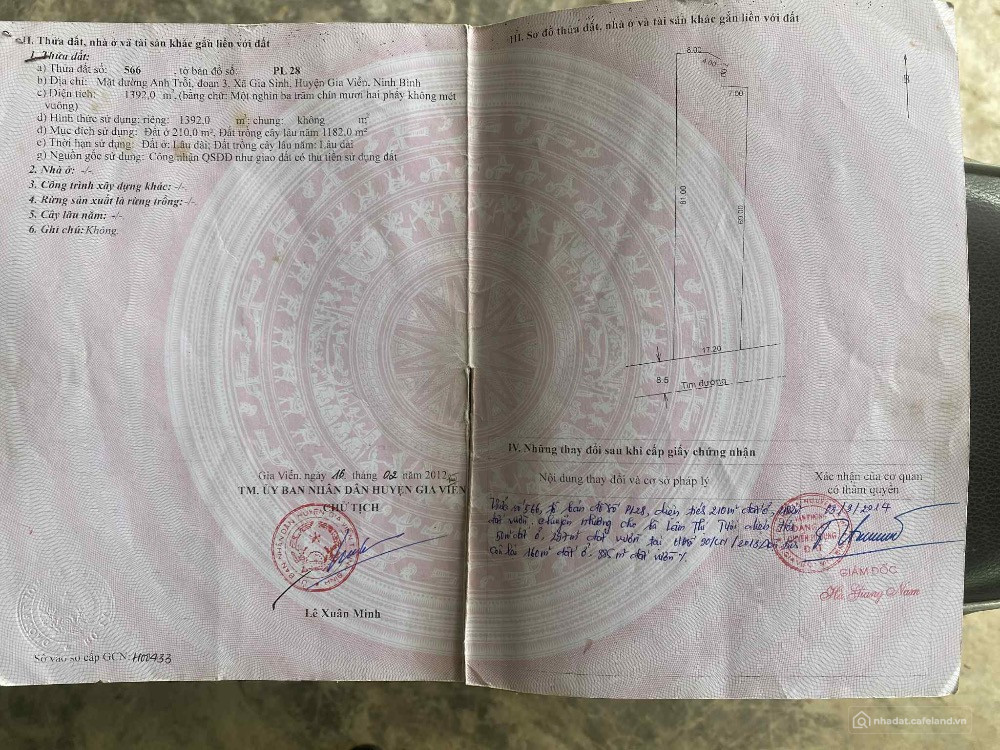 II. Thửa đất, nhà ở và tài sản khác gắn liền với đất
1. Thửa đất:
a) Thửa đất số: 566 , tờ bản đồ số: PL 28
b) Địa chỉ: Mặt đường Anh Trỗi, đoạn 3, Xã Gia Sinh, Huyện Gia Viễn, Ninh Bình
c) Diện tích: 1392.0 m², (bằng chữ: Một nghìn ba trăm chín mươi hai phảy không mét
vuông)
d) Hình thức sử dụng: riêng: 1392.0 m²; chung: không m²
đ) Mục đích sử dụng: Đất ở 210.0 m², Đất trồng cây lâu năm 1182.0 m²
e) Thời hạn sử dụng: Đất ở: Lâu dài; Đất trồng cây lâu năm: Lâu dài
g) Nguồn gốc sử dụng: Công nhận QSDĐ như giao đất có thu tiền sử dụng đất
2. Nhà ở: -/-
3. Công trình xây dựng khác: -/-
4. Rừng sản xuất là rừng trồng: -/-
5. Cây lâu năm: -/-
6. Ghi chú: Không.
Gia Viễn, ngày 16 tháng 02 năm 2012
TM. ỦY BAN NHÂN DÂN HUYỆN GIA VIỄN
CHỦ TỊCH
Lê Xuân Minh
Số vào sổ cấp GCN: H00433
III. Sơ đồ thửa đất, nhà ở và tài sản khác gắn liền với đất
8.00
4.00
7.00
B
61.00
60.00
17.20
8.5
Tim đường
IV. Những thay đổi sau khi cấp giấy chứng nhận
Nội dung thay đổi và cơ sở pháp lý
Xác nhận của cơ quan
có thẩm quyền
566, tờ bản đồ số PL28, diện tích 210m² đất ở,
đất vườn. chuyển nhượng cho bà Lâm Thị
50m² đất ở, đất vườn
Còn lại 160m² đất ở đất vườn
GIÁM ĐỐC
Hà Giang Nam
nhadat.cafeland.vn